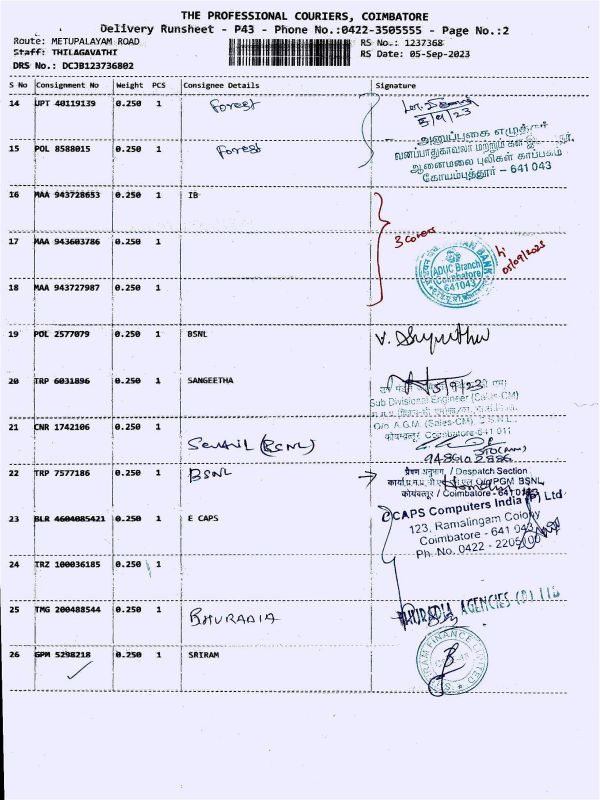 THE PROFESSIONAL COURIERS, COIMBATORE
Delivery Runsheet - P43 - Phone No.:0422-3505555 - Page No.:2
Route: METUPALAYAM ROAD
RS No.: 1237368
Staff: THILAGAVATHI
RS Date: 05-Sep-2023
DRS No.: DCJB123736802
S No Consignment No Weight PCS Consignee Details Signature
14 UPT 40119139 0.250 1 Forest
5/9/23
அனுப்புகை எழுத்தர்
15 POL 8588015 0.250 1 Forest
வனப்பாதுகாவலர் மற்றும் கள
ஆனைமலை புலிகள் காப்பகம்
கோயம்புத்தூர் - 641 043
16 MAA 943728653 0.250 1 IB
17 MAA 943603786 0.250 1
3 covers
05/09/2023
INDIAN BANK
ADUC Branch
Coimbatore
641043
18 MAA 943727987 0.250 1
19 POL 2577079 0.250 1 BSNL
20 TRP 6031896 0.250 1 SANGEETHA
5/9/23
Sub Divisional Engineer (Sales-CM)
O/o A.G.M. (Sales-CM), B.S.N.L.
21 CNR 1742106 0.250 1 Senthil (BSNL)
कोयम्बत्तूर/ Coimbatore-641 011
22 TRP 7577186 0.250 1 BSNL
प्रेषण अनुभाग / Despatch Section
O/o PGM BSNL,
कोयंबत्तूर / Coimbatore - 641043
23 BLR 4604085421 0.250 1 E CAPS
CAPS Computers India (P) Ltd
123, Ramalingam Colony
Coimbatore - 641 043
Ph. No. 0422 - 2205100
24 TRZ 100036185 0.250 1
25 TMG 200488544 0.250 1 BHURADIA
BHURADIA AGENCIES (P) LTD
26 GPM 5298218 0.250 1 SRIRAM
SHRIRAM FINANCE LIMITED